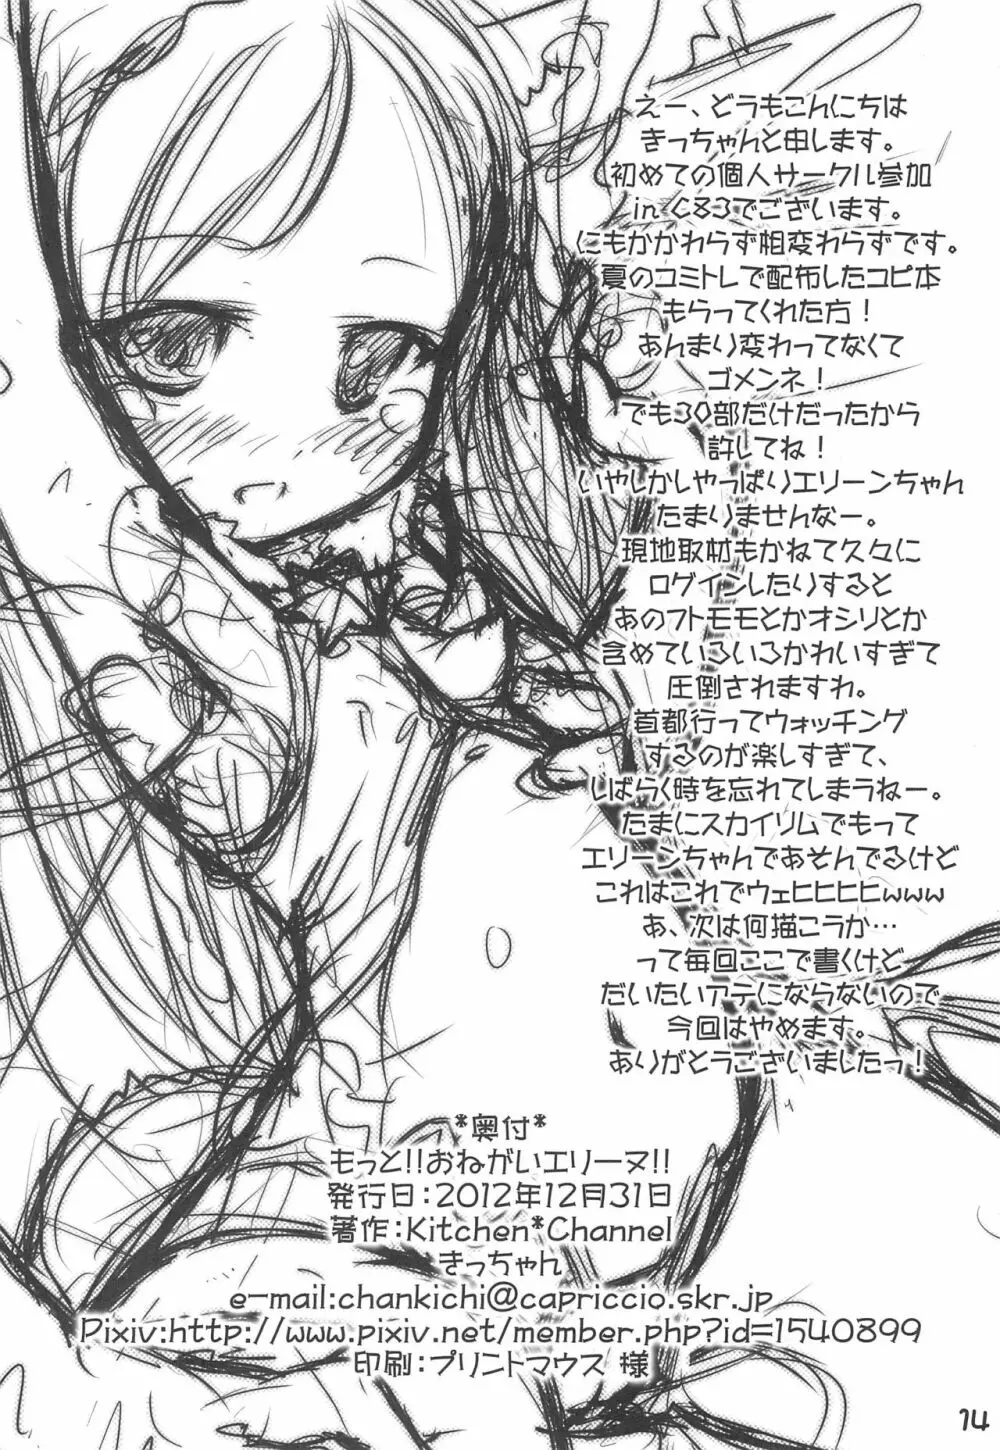 えー、どうもこんにちは
きっちゃんと申します。
初めての個人サークル参加
in C83でございます。
にもかかわらず相変わらずです。
夏のコミトレで配布したコピ本
もらってくれた方！
あんまり変わってなくて
ゴメンネ！
でも30部だけだったから
許してね！
いやしかしやっぱりエリーンちゃん
たまりませんなー。
現地取材もかねて久々に
ログインしたりすると
あのフトモモとかオシリとか
含めていろいろかわいすぎて
圧倒されますわ。
首都行ってウォッチング
するのが楽しすぎて、
しばらく時を忘れてしまうねー。
たまにスカイリムでもって
エリーンちゃんであそんでるけど
これはこれでウェヒヒヒヒwww
あ、次は何描こうか…
って毎回ここで書くけど
だいたいアテにならないので
今回はやめます。
ありがとうございましたっ！
*奥付*
もっと!!おねがいエリーヌ!!
発行日:2012年12月31日
著作:Kitchen*Channel
きっちゃん
e-mail:chankichi@capriccio.skr.jp
Pixiv:http://www.pixiv.net/member.php?id=1540899
印刷:プリントマウス 様
14